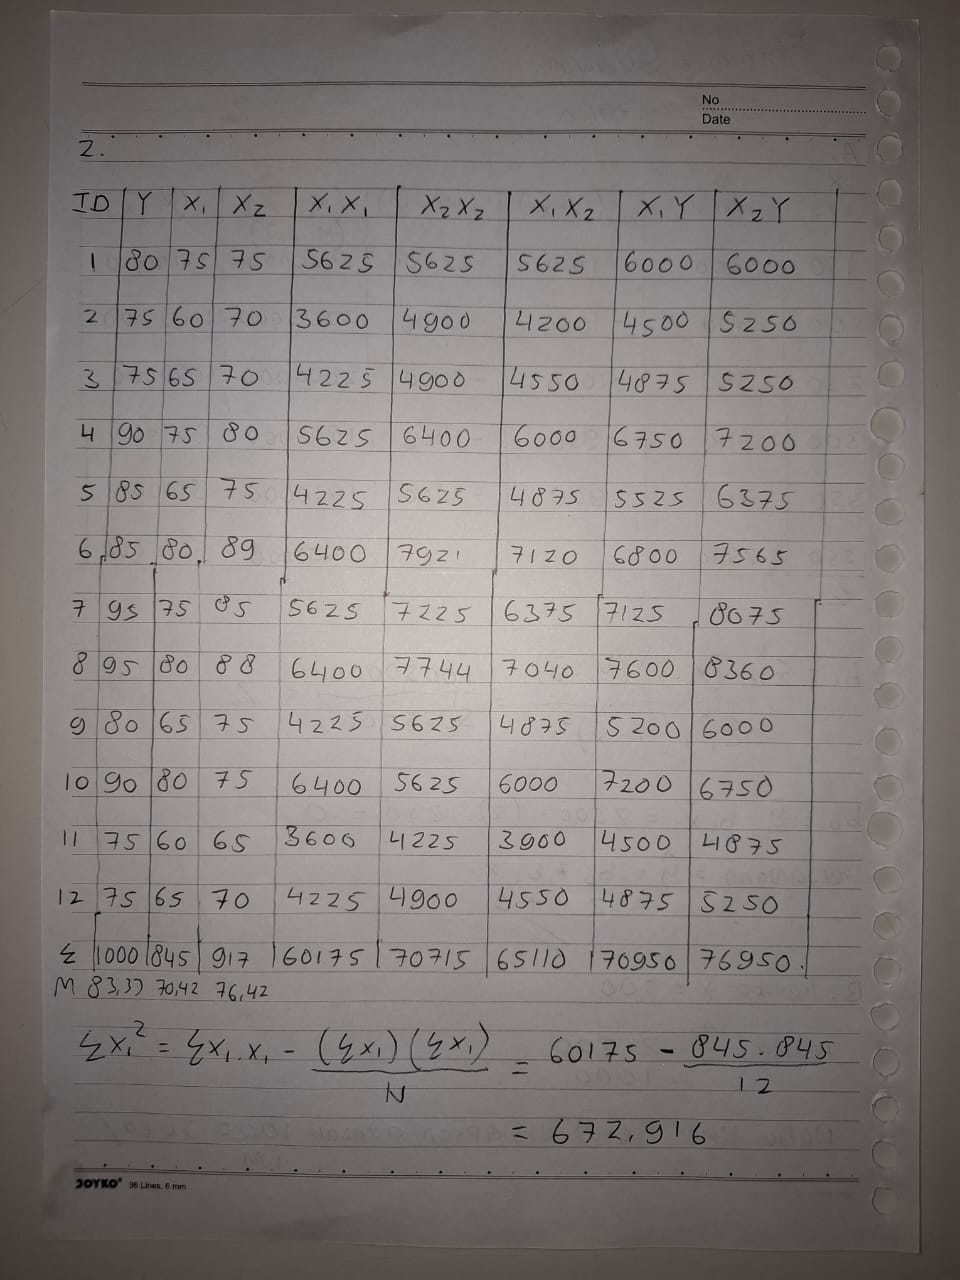 No
Date
2.
ID Y X₁ X₂ X₁X₁ X₂X₂ X₁X₂ X₁Y X₂Y
1 80 75 75 5625 5625 5625 6000 6000
2 75 60 70 3600 4900 4200 4500 5250
3 75 65 70 4225 4900 4550 4875 5250
4 90 75 80 5625 6400 6000 6750 7200
5 85 65 75 4225 5625 4875 5525 6375
6 85 80 89 6400 7921 7120 6800 7565
7 95 75 85 5625 7225 6375 7125 8075
8 95 80 88 6400 7744 7040 7600 8360
9 80 65 75 4225 5625 4875 5200 6000
10 90 80 75 6400 5625 6000 7200 6750
11 75 60 65 3600 4225 3900 4500 4875
12 75 65 70 4225 4900 4550 4875 5250
Σ 1000 845 917 60175 70715 65110 70950 76950.
M 83,33 70,42 76,42
Σx₁² = Σx₁.x₁ - (Σx₁)(Σx₁) / N = 60175 - 845.845 / 12
= 672,916
JOYKO® 36 Lines, 6 mm